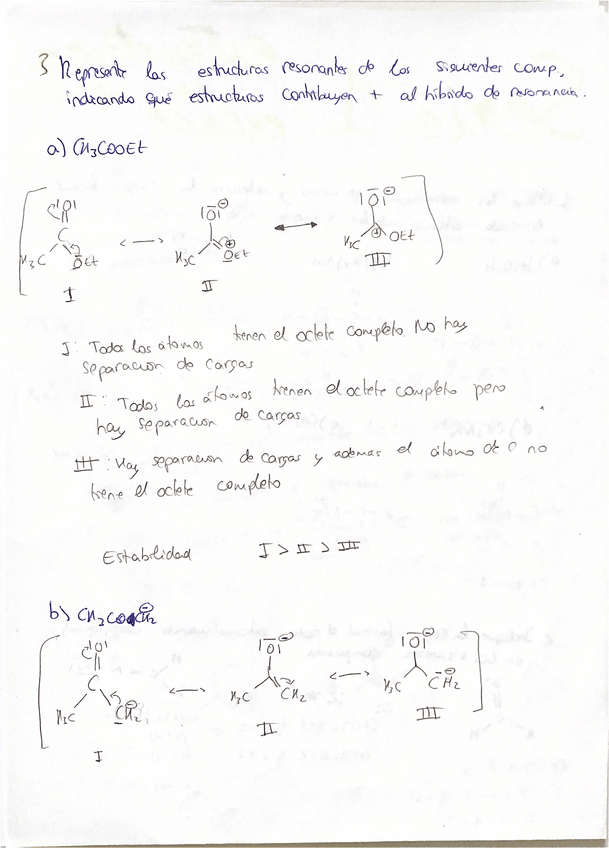 3 Represente las estructuras resonantes de los siguientes comp.,
indicando qué estructuras contribuyen + al híbrido de resonancia.
a) CH3COOEt
|O| |O|⊖ |O|⊖
C
H3C OEt H3C ⊕ OEt H3C ⊕ OEt
I II III
I: Todos los átomos tienen el octete completo. No hay
separacion de cargas
II: Todos los átomos tienen el octete completo pero
hay separacion de cargas
III: Hay separacion de cargas y además el átomo de C no
tiene el octete completo
Estabilidad I > II > III
b) CH3COCH2⊖
|O| |O|⊖ |O|⊖
C
H3C CH2⊖ H3C CH2 H3C CH2⊖
I II III